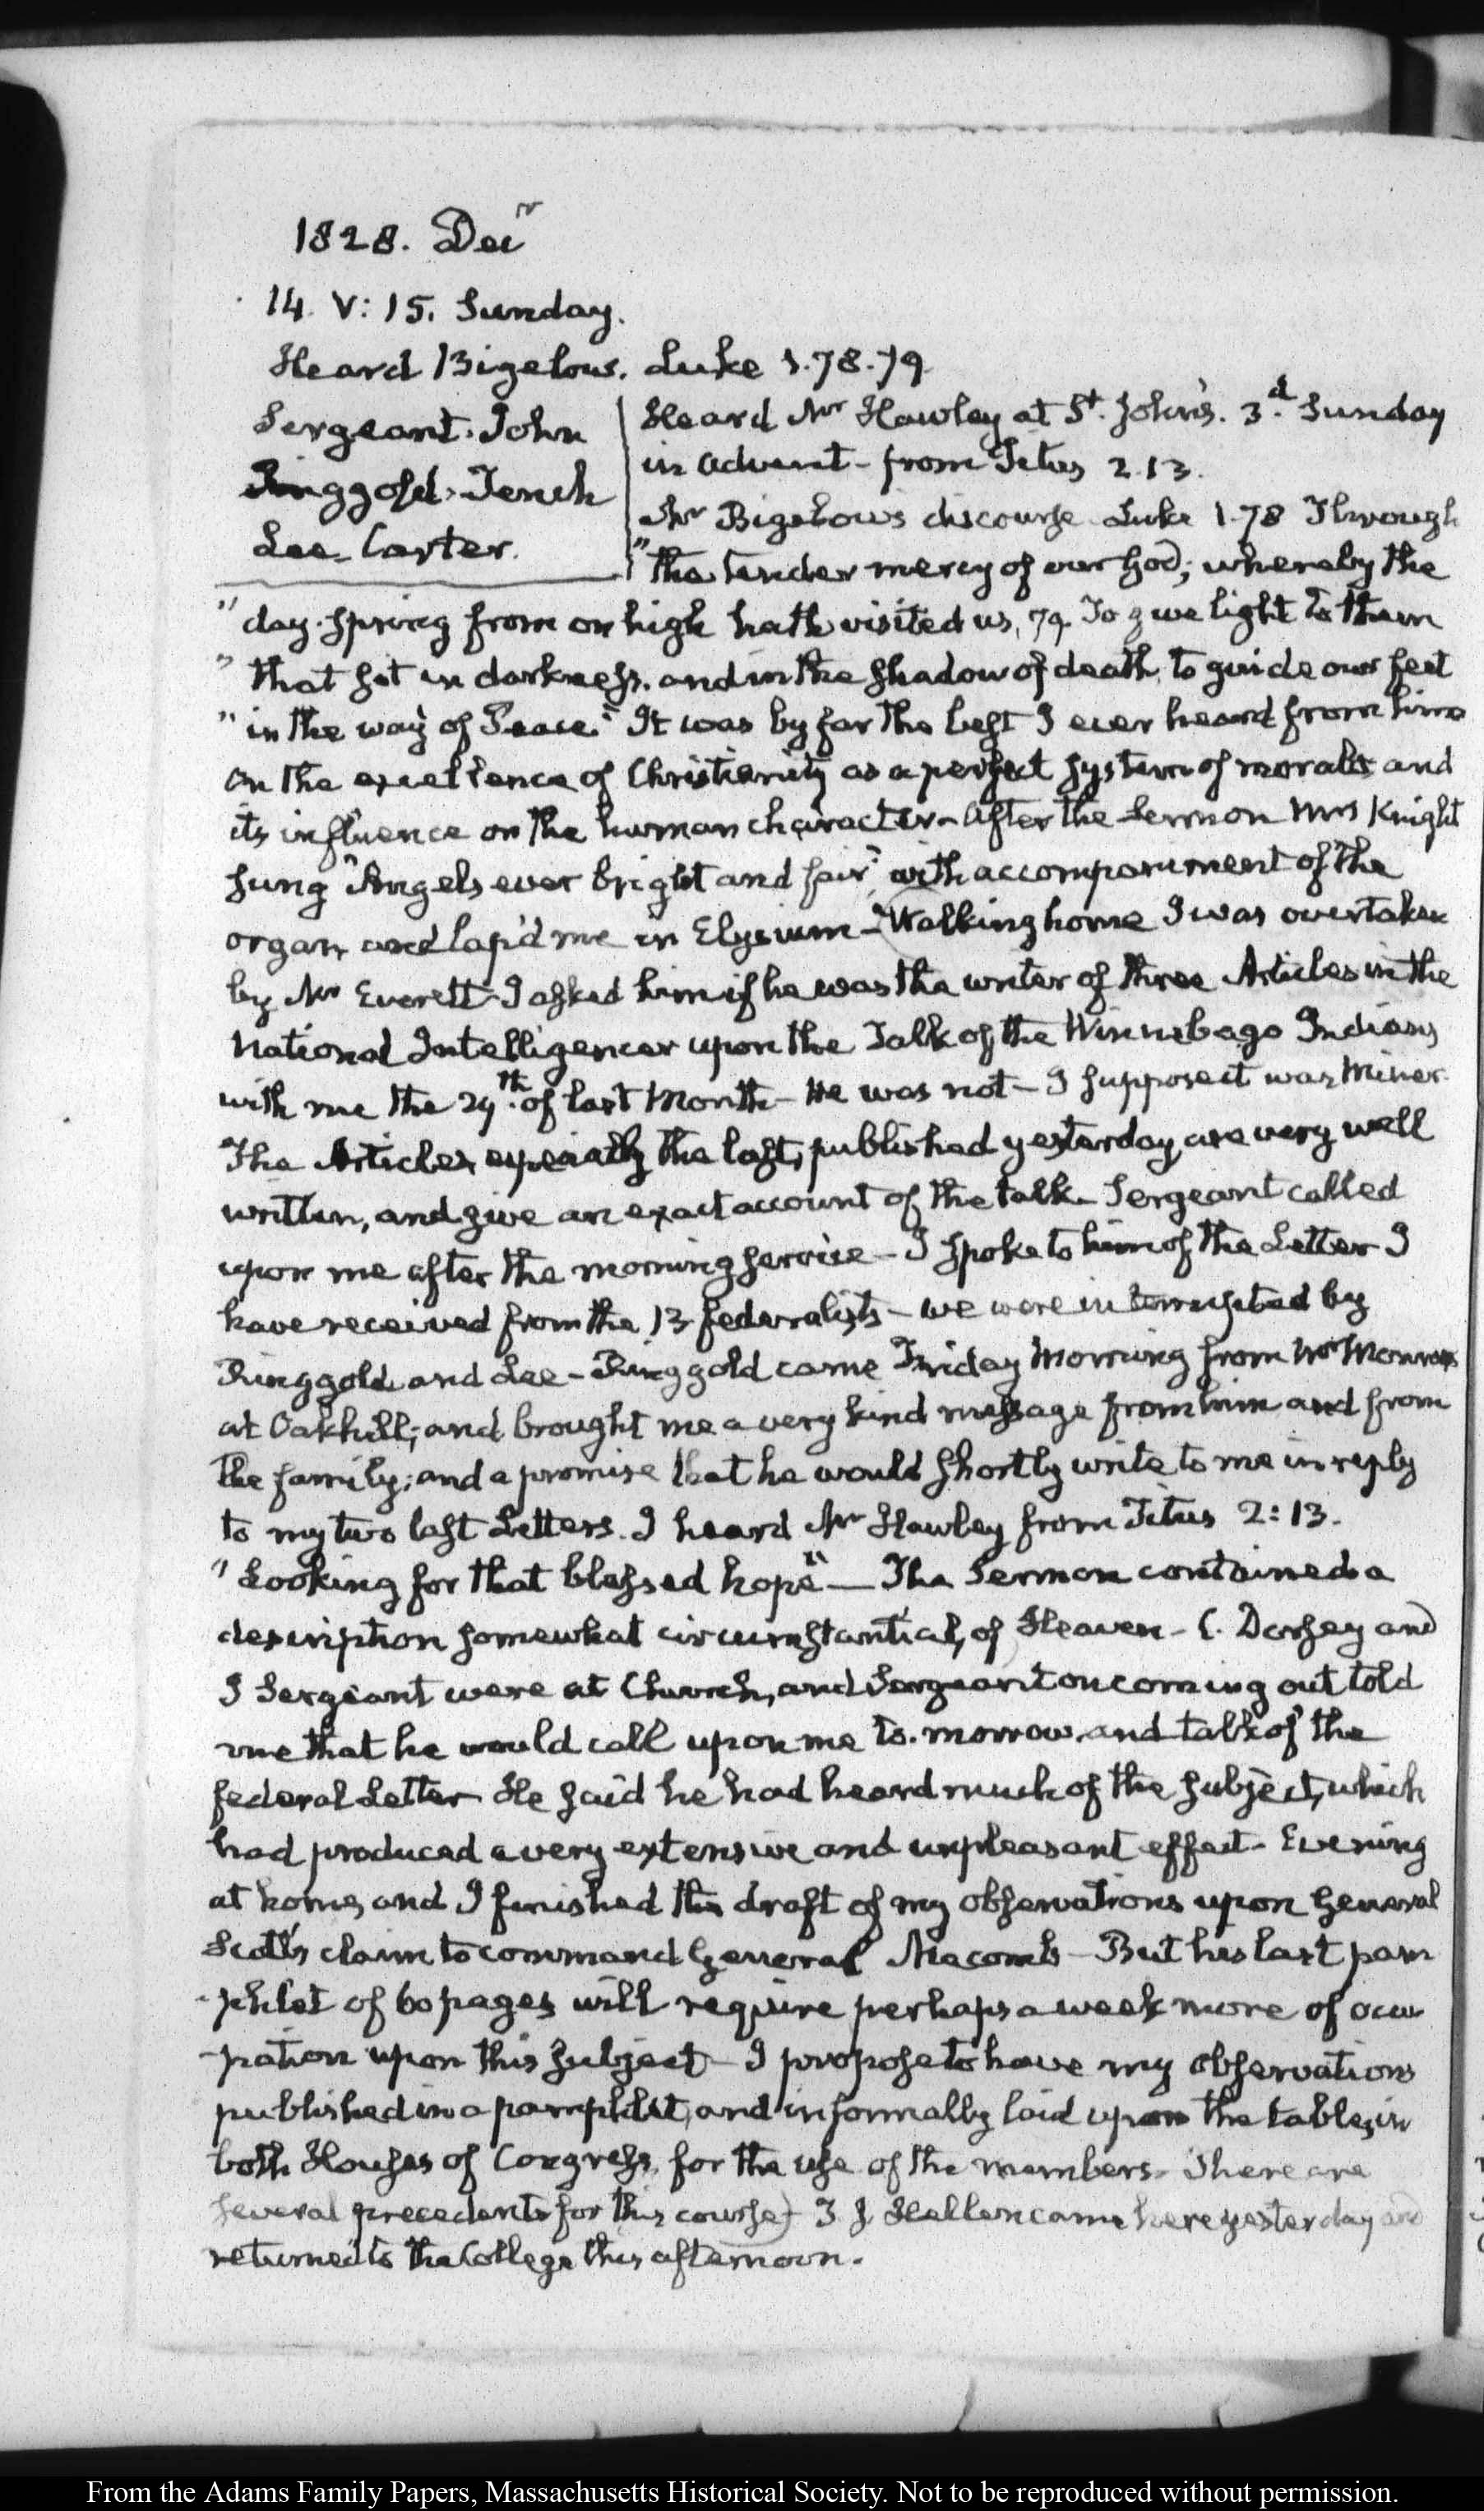 1828. Decr
14. V: 15. Sunday.
Heard Bigelow. Luke 1.78.79
Sergeant. John
Ringgold. Tench
Lee. Carter.
Heard Mr Hawley at St. John's. 3d. Sunday
in Advent - from Titus 2.13.
Mr Bigelow's discourse Luke 1.78 Through
"the tender mercy of our God; whereby the
"day-spring from on high hath visited us, 79. To give light to them
"that sit in darkness, and in the shadow of death, to guide our feet
"in the way of Peace." It was by far the best I ever heard from him
on the excellence of Christianity as a perfect system of morals and
its influence on the human character - After the Sermon Mrs Knight
sung "Angels ever bright and fair" with accompaniment of the
organ and lap'd me in Elysium - Walking home I was overtaken
by Mr Everett - I asked him if he was the writer of three Articles in the
National Intelligencer upon the Talk of the Winnebago Indians
with me the 29th. of last Month - He was not - I suppose it was Miner.
The Articles, especially the last, published yesterday, are very well
written, and give an exact account of the talk - Sergeant called
upon me after the morning service - I spoke to him of the Letter I
have received from the 13 federalists - we were interrupted by
Ringgold and Lee - Ringgold came Friday Morning from Mr Monroe's
at Oakhill; and brought me a very kind message from him and from
the family; and a promise that he would shortly write to me in reply
to my two last Letters. I heard Mr Hawley from Titus 2:13.
"Looking for that blessed hope" - The Sermon contained a
description somewhat circumstantial, of Heaven - C. Dorsey and
J Sergeant were at Church, and Sergeant on coming out told
me that he would call upon me to-morrow, and talk of the
federal Letter - He said he had heard much of the subject, which
had produced a very extensive and unpleasant effect - Evening
at home, and I finished the draft of my observations upon General
Scott's claim to command General Macomb - But his last pam
-phlet of 60 pages will require perhaps a week more of occu
-pation upon this subject - I propose to have my observations
published in a pamphlet, and informally laid upon the tables, in
both Houses of Congress, for the use of the members. There are
several precedents for this course) T J Hellen came here yesterday and
returned to the College this afternoon.
From the Adams Family Papers, Massachusetts Historical Society. Not to be reproduced without permission.